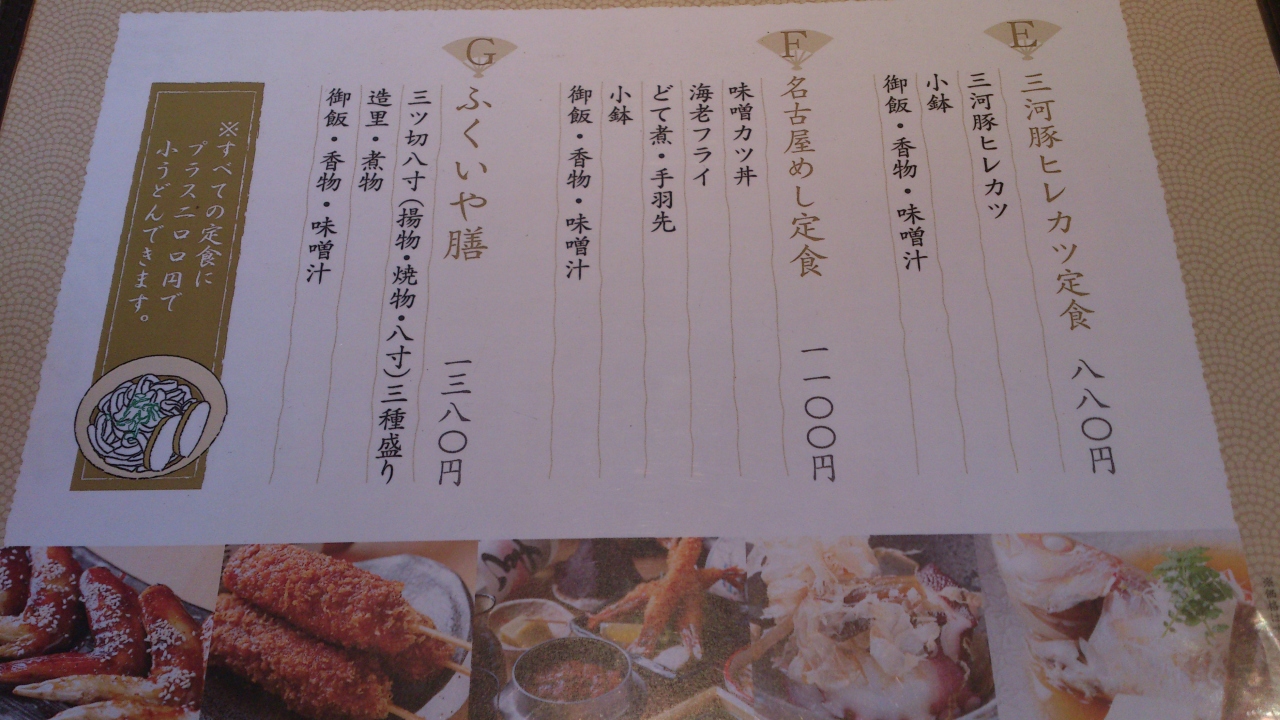 E
三河豚ヒレカツ定食 八八〇円
三河豚ヒレカツ
小鉢
御飯・香物・味噌汁
F
名古屋めし定食 一一〇〇円
味噌カツ丼
海老フライ
どて煮・手羽先
小鉢
御飯・香物・味噌汁
G
ふくいや膳 一三八〇円
三ツ切八寸(揚物・焼物・八寸)三種盛り
造里・煮物
御飯・香物・味噌汁
※すべての定食に
プラス二〇〇円で
小うどんできます。